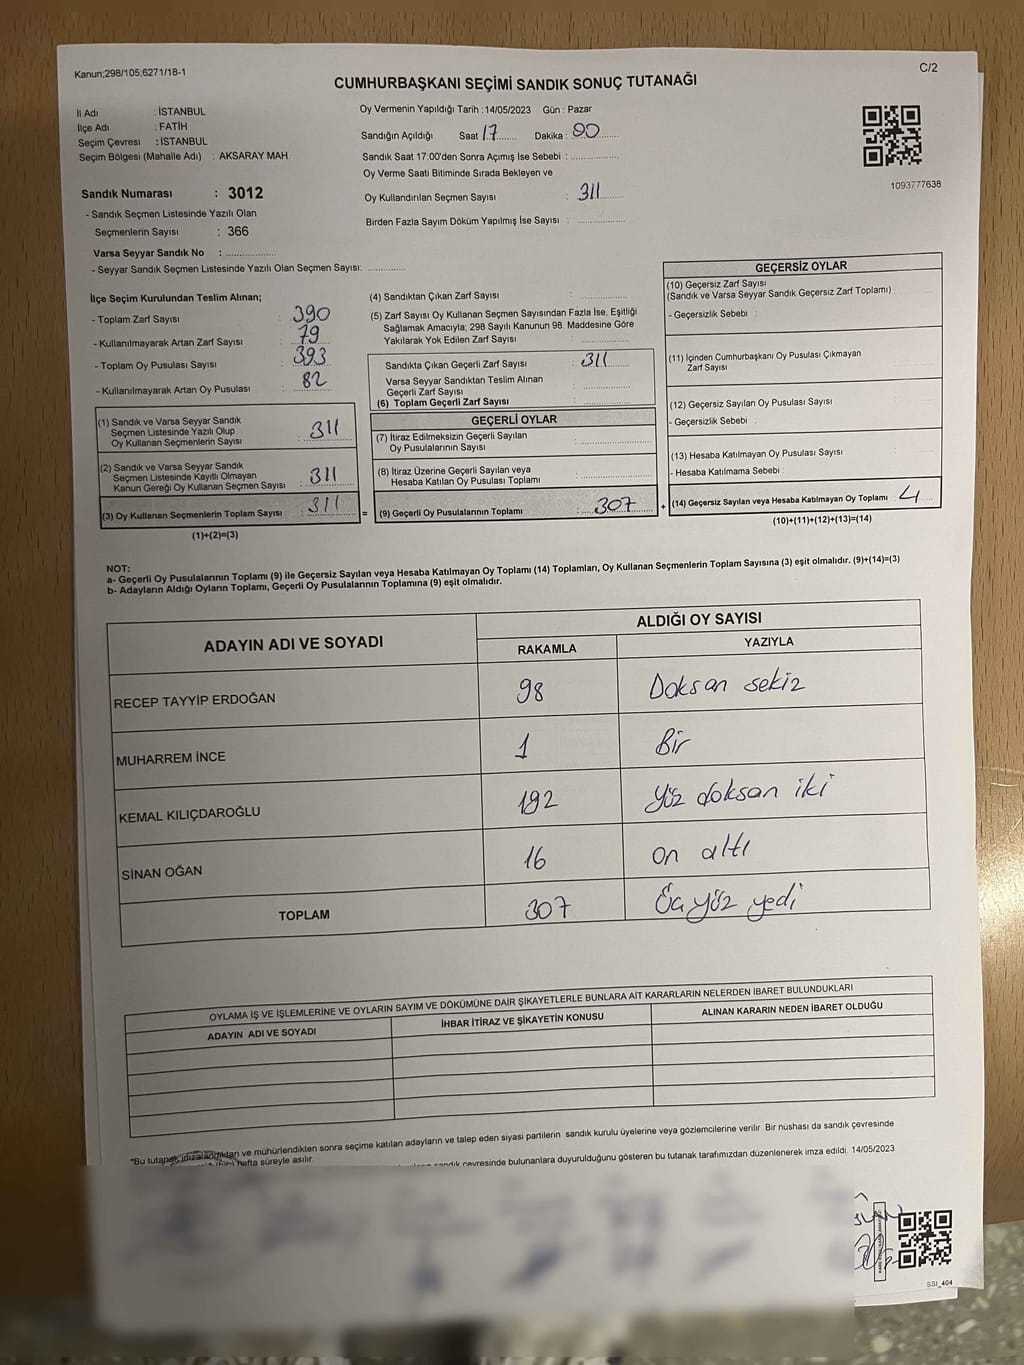 Kanun;298/105;6271/18-1
C/2
CUMHURBAŞKANI SEÇİMİ SANDIK SONUÇ TUTANAĞI
İl Adı : İSTANBUL
İlçe Adı : FATİH
Seçim Çevresi : İSTANBUL
Seçim Bölgesi (Mahalle Adı) : AKSARAY MAH.
Oy Vermenin Yapıldığı Tarih : 14/05/2023 Gün : Pazar
Sandığın Açıldığı Saat 17 Dakika : 00
Sandık Saat 17:00'den Sonra Açımış İse Sebebi :
Oy Verme Saati Bitiminde Sırada Bekleyen ve
Oy Kullandırılan Seçmen Sayısı : 311
Birden Fazla Sayım Döküm Yapılmış İse Sayısı :
1093777638
Sandık Numarası : 3012
- Sandık Seçmen Listesinde Yazılı Olan
Seçmenlerin Sayısı : 366
Varsa Seyyar Sandık No :
- Seyyar Sandık Seçmen Listesinde Yazılı Olan Seçmen Sayısı:
İlçe Seçim Kurulundan Teslim Alınan;
- Toplam Zarf Sayısı : 390
- Kullanılmayarak Artan Zarf Sayısı : 79
- Toplam Oy Pusulası Sayısı : 393
- Kullanılmayarak Artan Oy Pusulası : 82
(1) Sandık ve Varsa Seyyar Sandık
Seçmen Listesinde Yazılı Olup
Oy Kullanan Seçmenlerin Sayısı : 311
(2) Sandık ve Varsa Seyyar Sandık
Seçmen Listesinde Kayıtlı Olmayan
Kanun Gereği Oy Kullanan Seçmen Sayısı : 311
(3) Oy Kullanan Seçmenlerin Toplam Sayısı : 311
(1)+(2)=(3)
(4) Sandıktan Çıkan Zarf Sayısı :
(5) Zarf Sayısı Oy Kullanan Seçmen Sayısından Fazla İse, Eşitliği
Sağlamak Amacıyla; 298 Sayılı Kanunun 98. Maddesine Göre
Yakılarak Yok Edilen Zarf Sayısı :
Sandıkta Çıkan Geçerli Zarf Sayısı : 311
Varsa Seyyar Sandıktan Teslim Alınan
Geçerli Zarf Sayısı :
(6) Toplam Geçerli Zarf Sayısı :
GEÇERLİ OYLAR
(7) İtiraz Edilmeksizin Geçerli Sayılan
Oy Pusulalarının Sayısı :
(8) İtiraz Üzerine Geçerli Sayılan veya
Hesaba Katılan Oy Pusulası Toplamı :
= (9) Geçerli Oy Pusulalarının Toplamı : 307 +
GEÇERSİZ OYLAR
(10) Geçersiz Zarf Sayısı
(Sandık ve Varsa Seyyar Sandık Geçersiz Zarf Toplamı)
- Geçersizlik Sebebi :
(11) İçinden Cumhurbaşkanı Oy Pusulası Çıkmayan
Zarf Sayısı
(12) Geçersiz Sayılan Oy Pusulası Sayısı
- Geçersizlik Sebebi :
(13) Hesaba Katılmayan Oy Pusulası Sayısı
- Hesaba Katılmama Sebebi :
(14) Geçersiz Sayılan veya Hesaba Katılmayan Oy Toplamı : 4
(10)+(11)+(12)+(13)=(14)
NOT:
a- Geçerli Oy Pusulalarının Toplamı (9) ile Geçersiz Sayılan veya Hesaba Katılmayan Oy Toplamı (14) Toplamları, Oy Kullanan Seçmenlerin Toplam Sayısına (3) eşit olmalıdır. (9)+(14)=(3)
b- Adayların Aldığı Oyların Toplamı, Geçerli Oy Pusulalarının Toplamına (9) eşit olmalıdır.
ADAYIN ADI VE SOYADI
ALDIĞI OY SAYISI
RAKAMLA YAZIYLA
RECEP TAYYİP ERDOĞAN 98 Doksan sekiz
MUHARREM İNCE 1 Bir
KEMAL KILIÇDAROĞLU 192 Yüz doksan iki
SİNAN OĞAN 16 on altı
TOPLAM 307 Üç yüz yedi
OYLAMA İŞ VE İŞLEMLERİNE VE OYLARIN SAYIM VE DÖKÜMÜNE DAİR ŞİKAYETLERLE BUNLARA AİT KARARLARIN NELERDEN İBARET BULUNDUKLARI
ADAYIN ADI VE SOYADI İHBAR İTİRAZ VE ŞİKAYETİN KONUSU ALINAN KARARIN NEDEN İBARET OLDUĞU
*Bu tutanak imzalandıktan ve mühürlendikten sonra seçime katılan adayların ve talep eden siyasi partilerin sandık kurulu üyelerine veya gözlemcilerine verilir Bir nüshası da sandık çevresinde
hafta süreyle asılır.
sandık çevresinde bulunanlara duyurulduğunu gösteren bu tutanak tarafımızdan düzenlenerek imza edildi. 14/05/2023
SSI_404